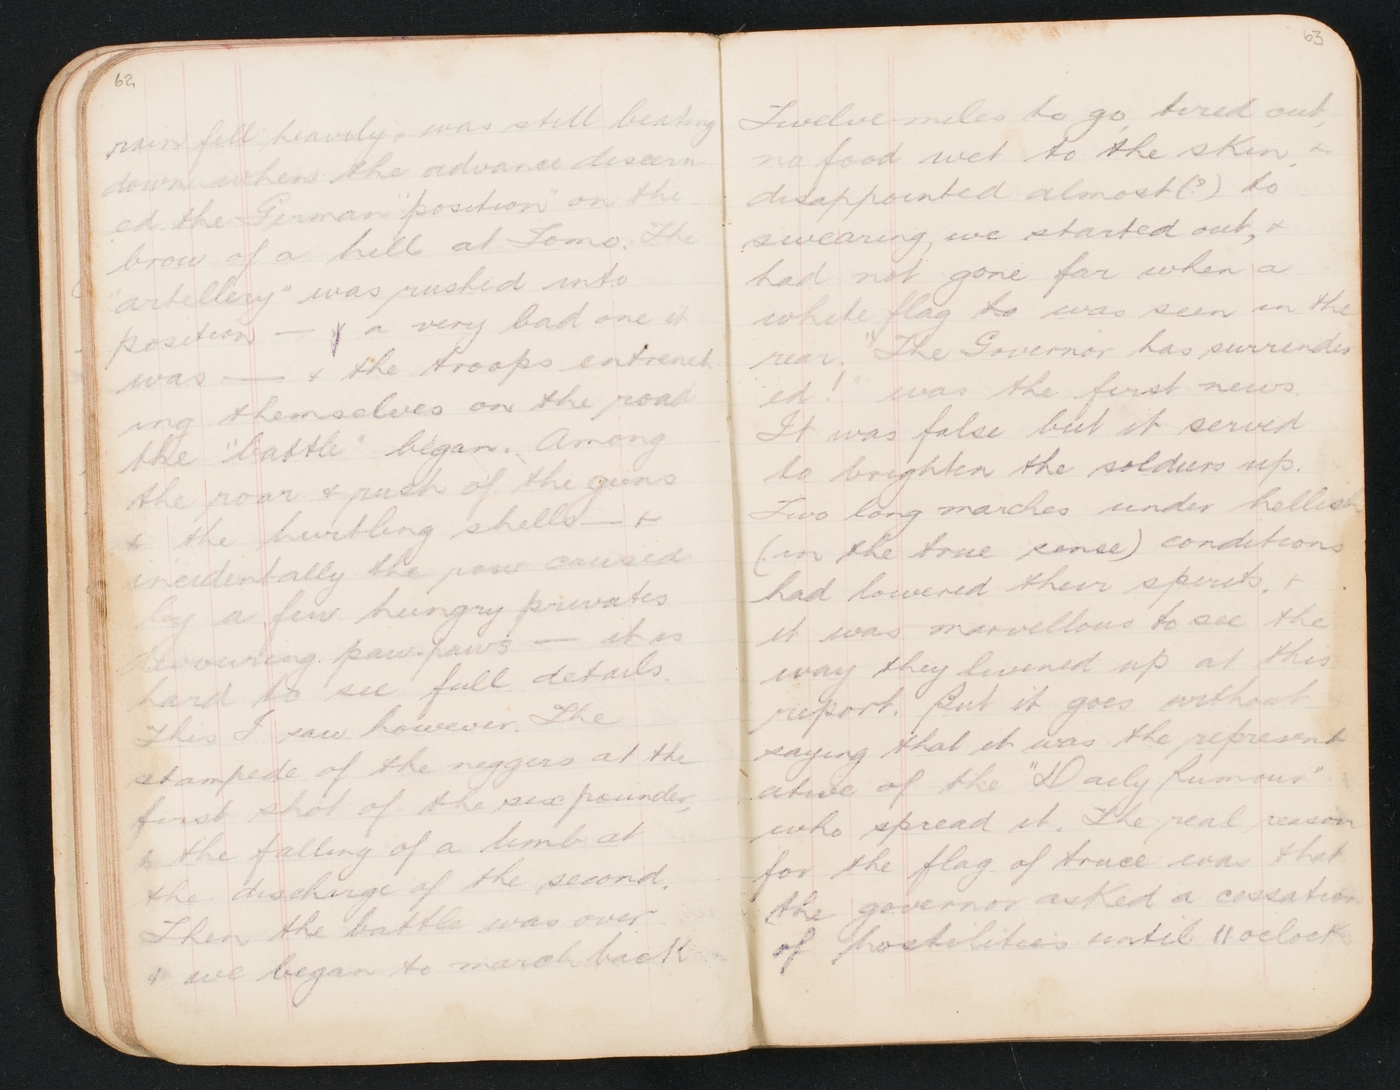 62
rain fell heavily, was still beating
down when the advance discern
ed the German "position" on the
brow of a hill at Tomo. The
"artellery" was rushed into
position — & a very bad one it
was — & the troops entrench
ing themselves on the road
the "battle" began. Among
the roar & rush of the guns
& the hurtling shells — &
incidentally the row caused
by a few hungry privates
devouring paw-paws — it is
hard to see full details.
This I saw however. The
stampede of the neggers at the
first shot of the six pounder,
& the falling of a limb at
the discharge of the second.
Then the battle was over
& we began to march back
63
Twelve miles to go, tired out,
no food wet to the skin, &
disappointed almost (?) to
swearing, we started out, &
had not gone far when a
white flag to was seen in the
rear. "The Governor has surrender
ed!" was the first news.
It was false but it served
to brighten the soldiers up.
Two long marches under hellish
(in the true sense) conditions
had lowered their spirits, &
it was marvellous to see the
way they livened up at this
report. But it goes without
saying that it was the represent
ative of the "Daily Rumour"
who spread it. The real reason
for the flag of truce was that
the governor asked a cessation
of hostilities until 11 oclock